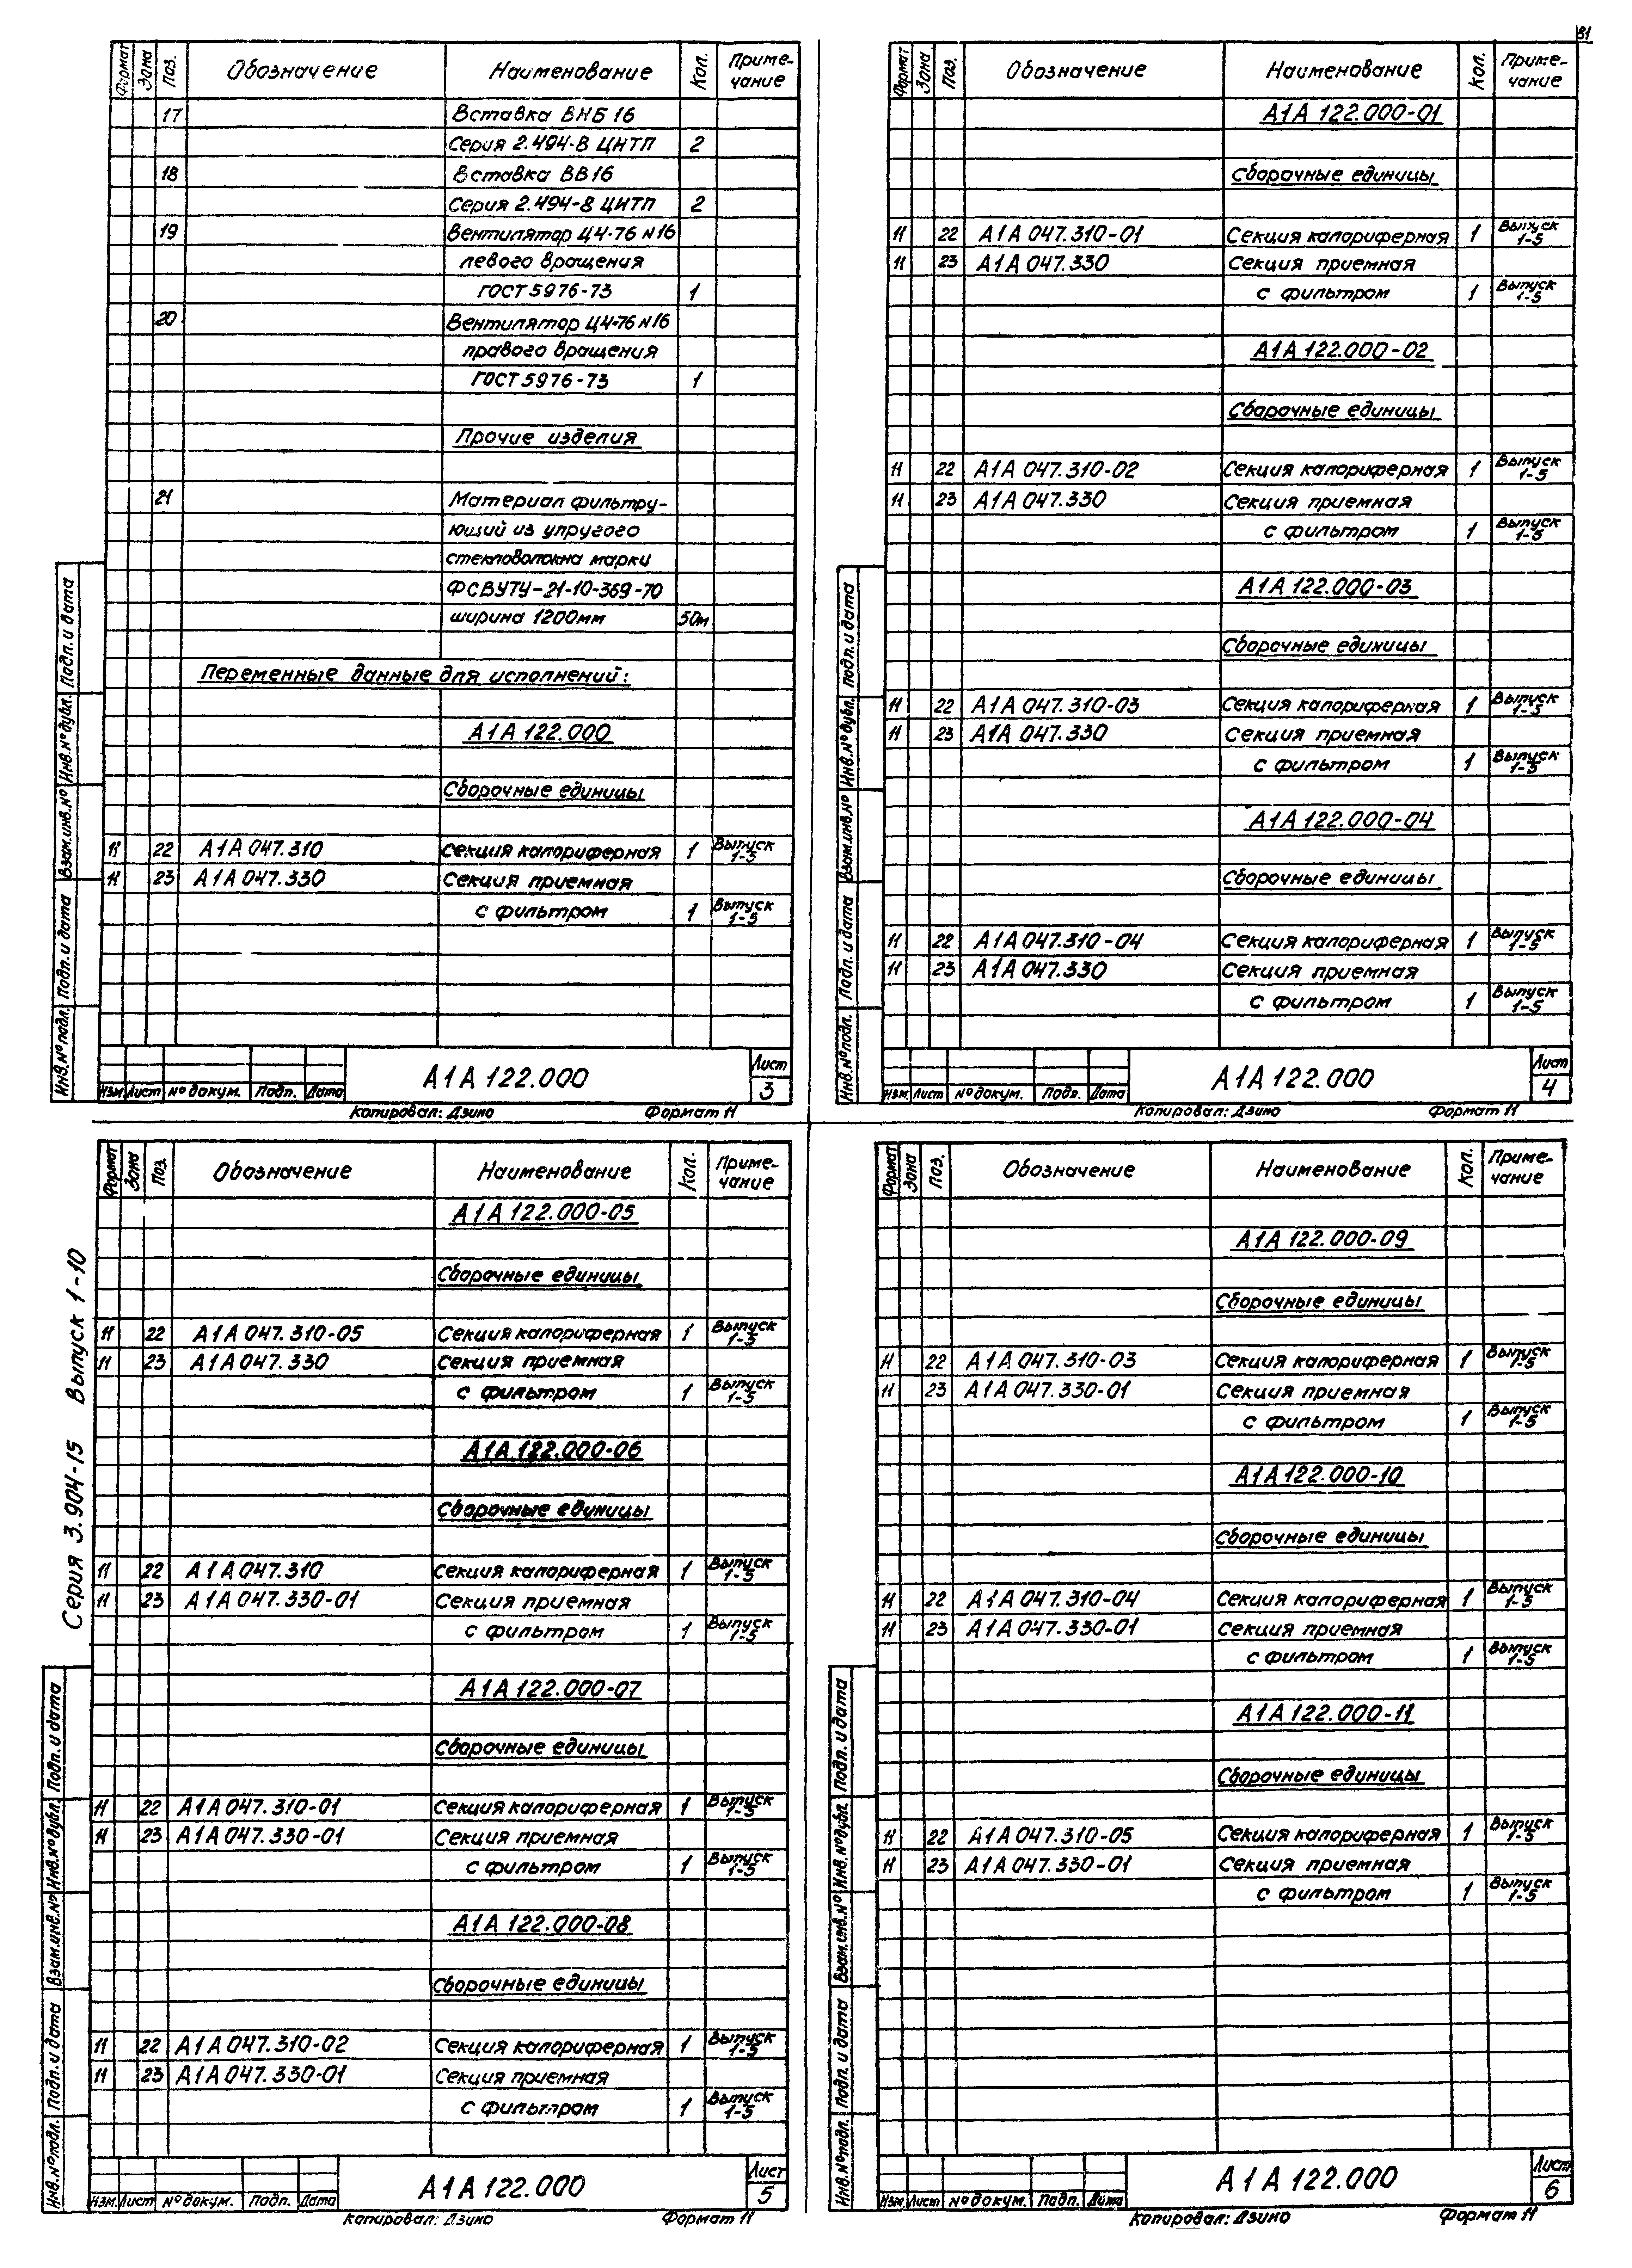 31
Формат Зона Поз. Обозначение Наименование Кол. Приме-
чание
17 Вставка ВНБ 16
Серия 2.494-8 ЦНТП 2
18 Вставка ВВ16
Серия 2.494-8 ЦИТП 2
19 Вентилятор Ц4-76 №16
левого вращения
ГОСТ 5976-73 1
20 Вентилятор Ц4-76 №16
правого вращения
ГОСТ 5976-73 1
Прочие изделия
21 Материал фильтру-
ющий из упругого
стекловолокна марки
ФСВУТУ-21-10-369-70
ширина 1200мм 50м
Переменные данные для исполнений:
А1А 122.000
Сборочные единицы
11 22 А1А 047.310 Секция калориферная 1 Выпуск
1-5
11 23 А1А 047.330 Секция приемная
с фильтром 1 Выпуск
1-5
Инв.№подл. Подп. и дата Взам.инв.№ Инв.№дубл. Подп. и дата
Изм. Лист №докум. Подп. Дата А1А 122.000 Лист
3
Копировал: Дзино Формат 11
Формат Зона Поз. Обозначение Наименование Кол. Приме-
чание
А1А 122.000-01
Сборочные единицы
11 22 А1А 047.310-01 Секция калориферная 1 Выпуск
1-5
11 23 А1А 047.330 Секция приемная
с фильтром 1 Выпуск
1-5
А1А 122.000-02
Сборочные единицы
11 22 А1А 047.310-02 Секция калориферная 1 Выпуск
1-5
11 23 А1А 047.330 Секция приемная
с фильтром 1 Выпуск
1-5
А1А 122.000-03
Сборочные единицы
11 22 А1А 047.310-03 Секция калориферная 1 Выпуск
1-5
11 23 А1А 047.330 Секция приемная
с фильтром 1 Выпуск
1-5
А1А 122.000-04
Сборочные единицы
11 22 А1А 047.310-04 Секция калориферная 1 Выпуск
1-5
11 23 А1А 047.330 Секция приемная
с фильтром 1 Выпуск
1-5
Инв.№подл. Подп. и дата Взам.инв.№ Инв.№дубл. Подп. и дата
Изм. Лист №докум. Подп. Дата А1А 122.000 Лист
4
Копировал: Дзино Формат 11
Серия 3.904-15 Выпуск 1-10
Формат Зона Поз. Обозначение Наименование Кол. Приме-
чание
А1А 122.000-05
Сборочные единицы
11 22 А1А 047.310-05 Секция калориферная 1 Выпуск
1-5
11 23 А1А 047.330 Секция приемная
с фильтром 1 Выпуск
1-5
А1А 122.000-06
Сборочные единицы
11 22 А1А 047.310 Секция калориферная 1 Выпуск
1-5
11 23 А1А 047.330-01 Секция приемная
с фильтром 1 Выпуск
1-5
А1А 122.000-07
Сборочные единицы
11 22 А1А 047.310-01 Секция калориферная 1 Выпуск
1-5
11 23 А1А 047.330-01 Секция приемная
с фильтром 1 Выпуск
1-5
А1А 122.000-08
Сборочные единицы
11 22 А1А 047.310-02 Секция калориферная 1 Выпуск
1-5
11 23 А1А 047.330-01 Секция приемная
с фильтром 1 Выпуск
1-5
Инв.№подл. Подп. и дата Взам.инв.№ Инв.№дубл. Подп. и дата
Изм. Лист №докум. Подп. Дата А1А 122.000 Лист
5
Копировал: Дзино Формат 11
Формат Зона Поз. Обозначение Наименование Кол. Приме-
чание
А1А 122.000-09
Сборочные единицы
11 22 А1А 047.310-03 Секция калориферная 1 Выпуск
1-5
11 23 А1А 047.330-01 Секция приемная
с фильтром 1 Выпуск
1-5
А1А 122.000-10
Сборочные единицы
11 22 А1А 047.310-04 Секция калориферная 1 Выпуск
1-5
11 23 А1А 047.330-01 Секция приемная
с фильтром 1 Выпуск
1-5
А1А 122.000-11
Сборочные единицы
11 22 А1А 047.310-05 Секция калориферная 1 Выпуск
1-5
11 23 А1А 047.330-01 Секция приемная
с фильтром 1 Выпуск
1-5
Инв.№подл. Подп. и дата Взам.инв.№ Инв.№дубл. Подп. и дата
Изм. Лист №докум. Подп. Дата А1А 122.000 Лист
6
Копировал: Дзино Формат 11